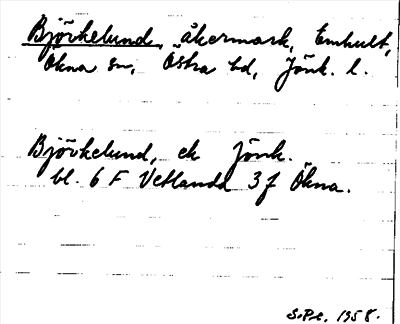 Björkelund, åkermark, Emhult,
Ökna sn, Östra hd, Jönk. l.
Björkelund, ek Jönk.
bl. 6 F Vetlanda 3 f Ökna.
1958.